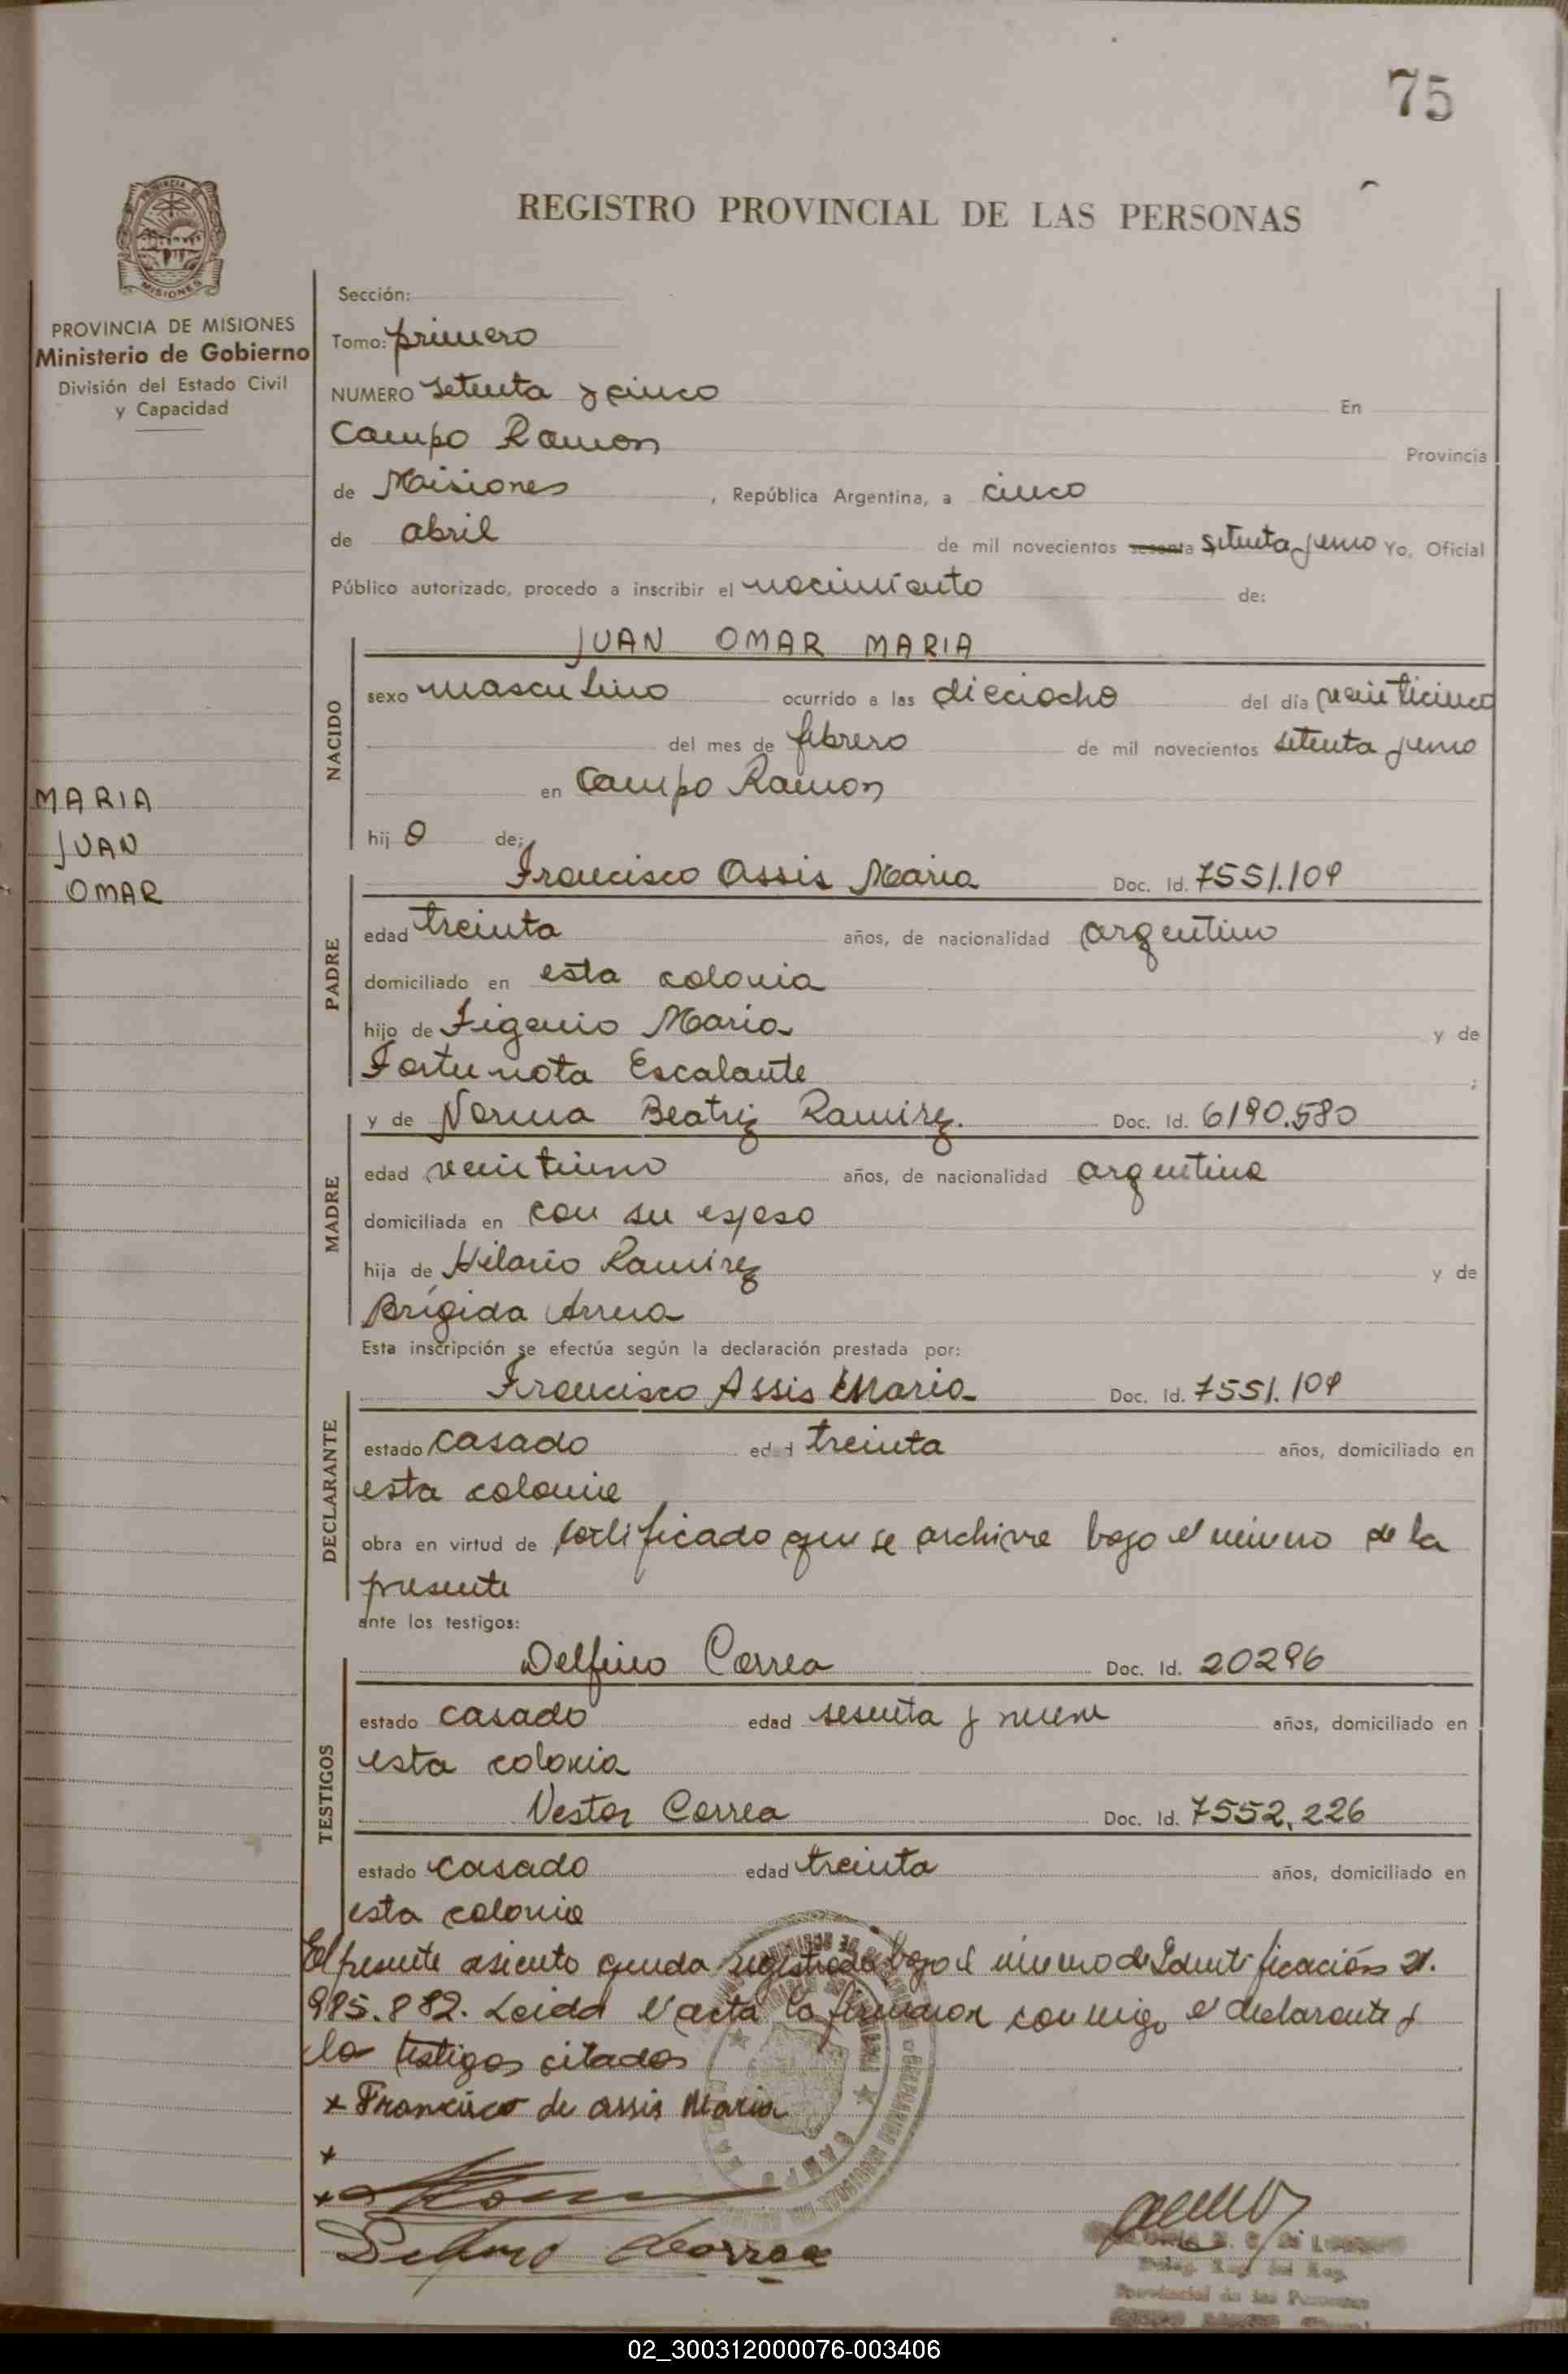 75
REGISTRO PROVINCIAL DE LAS PERSONAS
PROVINCIA DE MISIONES
Ministerio de Gobierno
División del Estado Civil
y Capacidad
MARIA
JUAN
OMAR
Sección:
Tomo: primero
NUMERO setenta y cinco En
Campo Ramon Provincia
de Misiones, República Argentina, a cinco
de abril de mil novecientos sesenta setenta y uno Yo, Oficial
Público autorizado, procedo a inscribir el nacimiento de:
JUAN OMAR MARIA
NACIDO
sexo masculino ocurrido a las dieciocho del día veinticinco
del mes de febrero de mil novecientos setenta y uno
en Campo Ramon
hij o de;
PADRE
Francisco Assis Maria Doc. Id. 7551.109
edad treinta años, de nacionalidad argentino
domiciliado en esta colonia
hijo de Maria y de
Fortunata Escalante ;
MADRE
y de Norma Beatriz Ramirez. Doc. Id. 6190.580
edad veintiuno años, de nacionalidad argentina
domiciliada en con su esposo
hija de Hilario Ramirez y de
Brígida
Esta inscripción se efectúa según la declaración prestada por:
DECLARANTE
Francisco Assis Maria Doc. Id. 7551.109
estado casado edad treinta años, domiciliado en
esta colonia
obra en virtud de certificado que se archiva bajo el número de la
presente
ante los testigos:
TESTIGOS
Delfino Correa Doc. Id. 20296
estado casado edad sesenta y nueve años, domiciliado en
esta colonia
Nestor Correa Doc. Id. 7552.226
estado casado edad treinta años, domiciliado en
esta colonia
El presente asiento queda registrado bajo el número de Identificación 21.
985.882. Leida el acta la firman conmigo el declarante y
los testigos citados
x Francisco de assis Maria
x
x
Delfino Correa
Provincial de las Personas
02_300312000076-003406